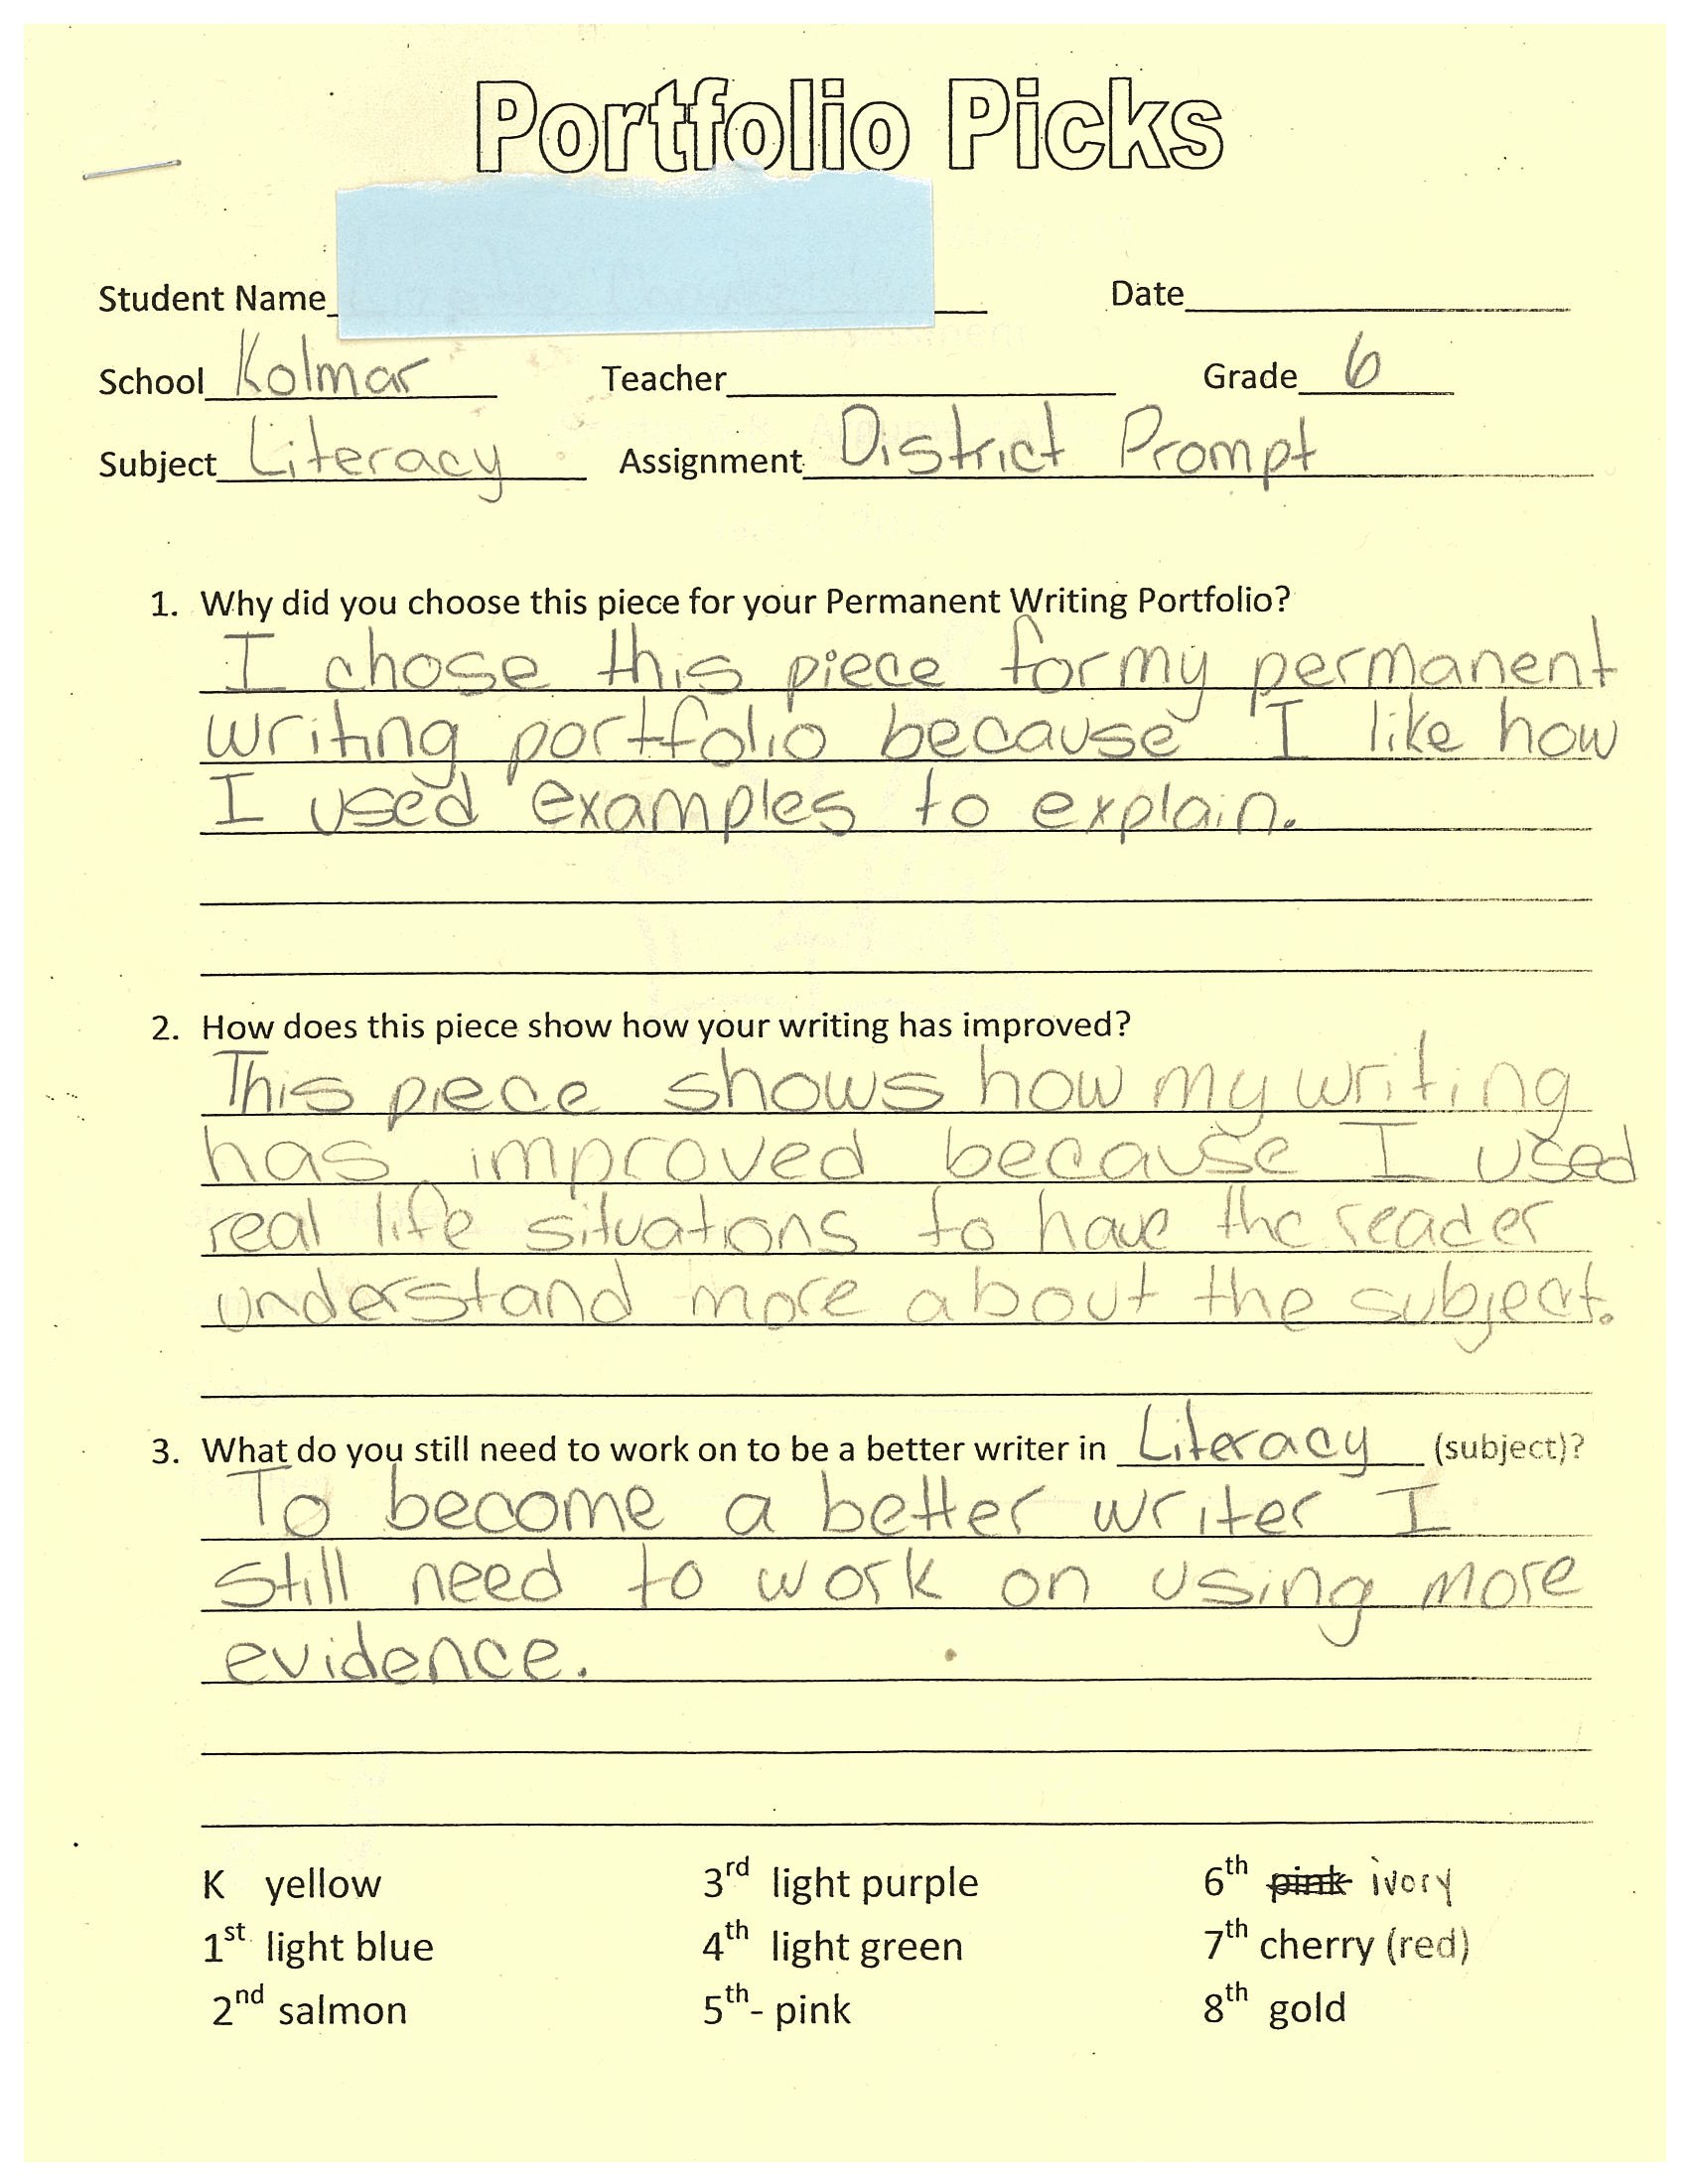 Portfolio Picks
Student Name
Date
School Kolmar Teacher Grade 6
Subject Literacy Assignment District Prompt
1. Why did you choose this piece for your Permanent Writing Portfolio?
I chose this piece for my permanent
writing portfolio because I like how
I used examples to explain.
2. How does this piece show how your writing has improved?
This piece shows how my writing
has improved because I used
real life situations to have the reader
understand more about the subject.
3. What do you still need to work on to be a better writer in Literacy (subject)?
To become a better writer I
still need to work on using more
evidence.
K yellow 3rd light purple 6th pink ivory
1st light blue 4th light green 7th cherry (red)
2nd salmon 5th- pink 8th gold